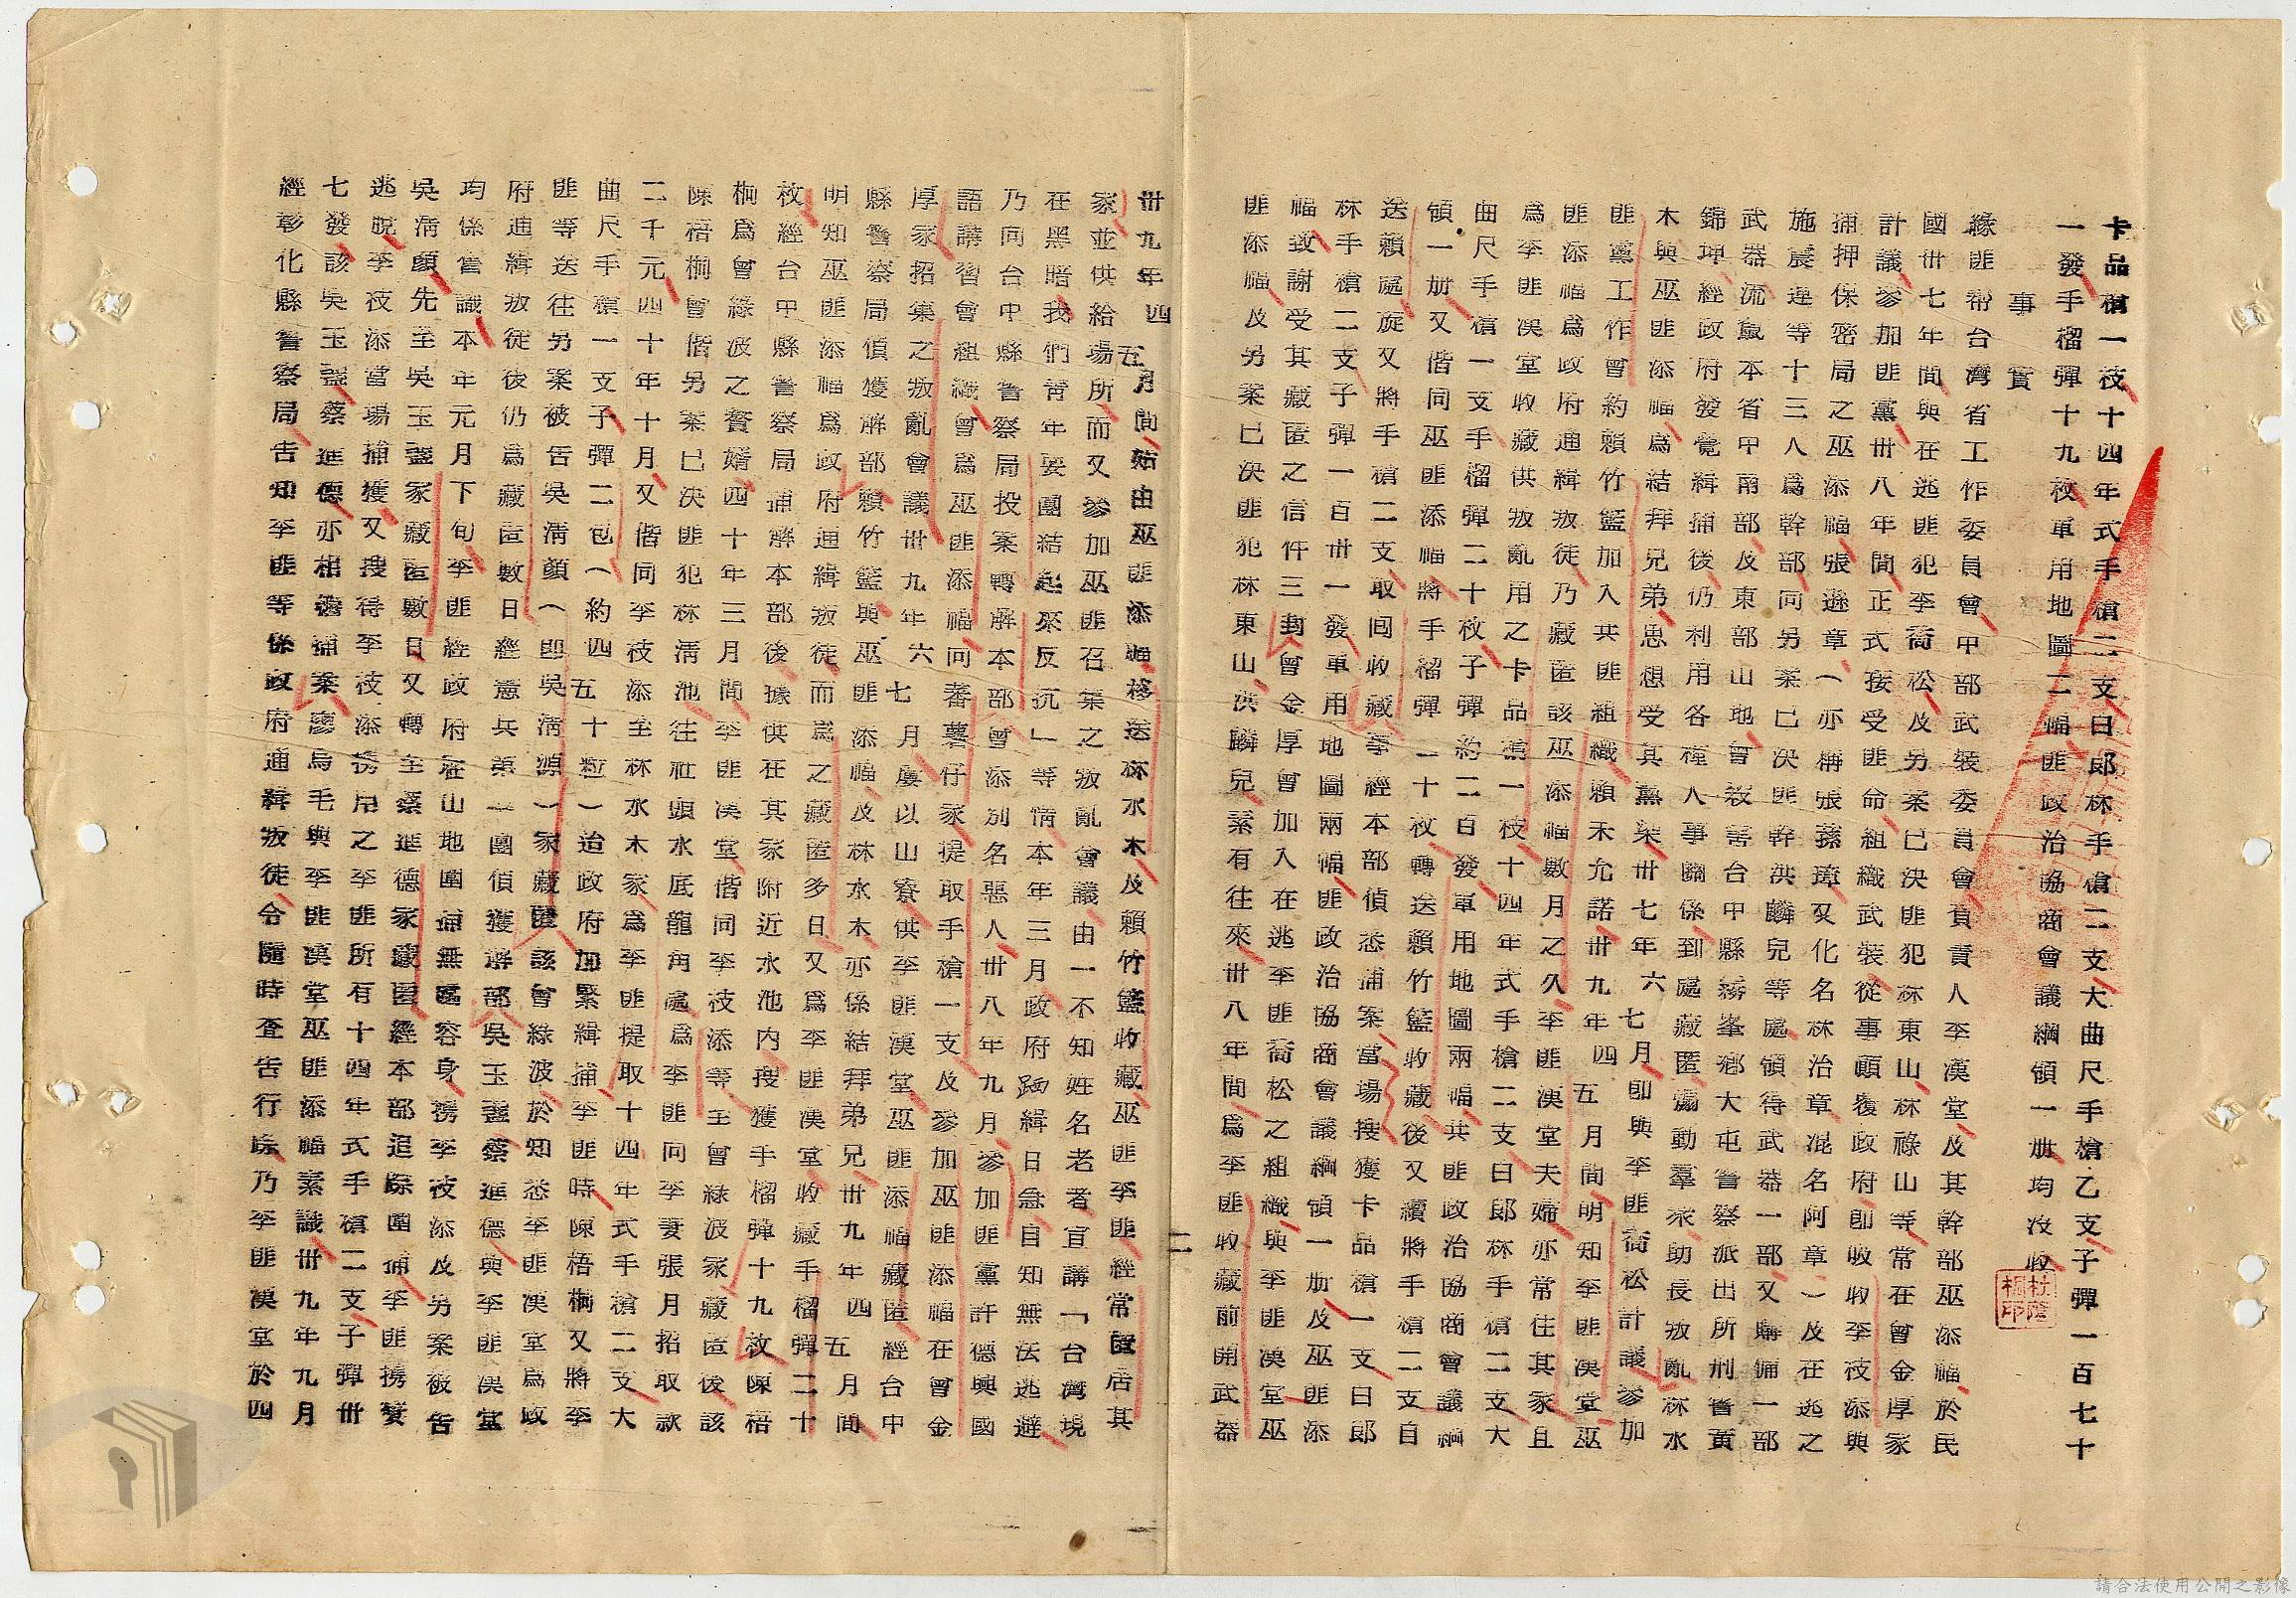 卡品槍一枝十四年式手槍二支曰郎林手槍二支大曲尺手槍乙支子彈一百七十
一發手榴彈十九枚軍用地圖二幅匪政治協商會議綱領一册均沒收
事實
緣匪幫台灣省工作委員會中部武裝委員會負責人李漢堂及其幹部巫添福於民
國卅七年間與在逃匪犯李喬松及另案已決匪犯林東山林祿山等常在曾金厚家
計議參加匪黨卅八年間正式接受匪命組織武裝從事顛覆政府即吸收李枝添與
捕押保密局之巫添福張遜章(亦稱張蓀璋又化名林治章混名阿章)及在逃之
施震達等十三人為幹部同另案已決匪幹洪麟兒等處領得武器一部又購備一部
武器流竄本省中南部及東部山地會殺害台中縣霧峯鄉大屯警察派出所刑警黃
錦坤經政府發覺緝捕後仍利用各種人事關係到處藏匿煽動羣衆助長叛亂林水
木與巫匪添福為結拜兄弟思想受其薰染卅七年六七月即與李匪喬松計議參加
匪黨工作曾約賴竹籃加入共匪組織賴未允諾卅九年四五月間明知李匪漢堂巫
匪添福為政府通緝叛徒乃藏匿該巫添福數月之久李匪漢堂夫婦亦常住其家且
為李匪漢堂收藏供叛亂用之卡品槍一枝十四年式手槍二支曰郎林手槍二支大
曲尺手槍一支手榴彈二十枚子彈約二百發軍用地圖兩幅共匪政治協商會議綱
領一册又偕同巫匪添福將手榴彈二十枚轉送賴竹籃收藏後又續將手槍二支自
送賴處旋又將手槍二支取回收藏事經本部偵悉捕案當場搜獲卡品槍一支曰郎
林手槍二支子彈一百卅一發軍用地圖兩幅匪政治協商會議綱領一册及巫匪添
福致謝受其藏匿之信件三封曾金厚曾加入在逃李匪喬松之組織與李匪漢堂巫
匪添福及另案已決匪犯林東山洪麟兒素有往來卅八年間為李匪收藏前開武器
二
卅九年四五月間始由巫匪添福移送林水木及賴竹籃收藏巫匪李匪經常匿居其
家並供給場所而又參加巫匪召集之叛亂會議由一不知姓名老者宣講「台灣現
在黑暗我們青年要團結起來反抗」等情本年三月政府跴緝日急自知無法逃避
乃同台中縣警察局投案轉解本部曾添別名惡人卅八年九月參加匪黨許德興國
語講習會組織曾為巫匪添福向蕃薯仔家提取手槍一支及參加巫匪添福在曾金
厚家招集之叛亂會議卅九年六七月屢以山寮供李匪漢堂巫匪添福藏匿經台中
縣警察局偵獲解部賴竹籃與巫匪添福及林水木亦係結拜弟兄卅九年四五月間
明知巫匪添福為政府通緝叛徒而為之藏匿多日又為李匪漢堂收藏手榴彈二十
枚經台中縣警察局捕解本部後據供在其家附近水池內搜獲手榴彈十九枚陳梧
桐為曾綠波之贅婿四十年三月間李匪漢堂偕同李枝添等至曾綠波家藏匿後該
陳梧桐曾偕另案已決匪犯林淸池往社頭水底龍角處為李匪同李妻張月招取款
二千元四十年十月又偕同李枝添至林水木家為李匪提取十四年式手槍二支大
曲尺手槍一支子彈二包(約四五十粒)迨政府加緊緝捕李匪時陳梧桐又將李
匪等送往另案被告吳淸顏(即吳淸源)家藏匿該曾綠波於知悉李匪漢堂為政
府通緝叛徒後仍為藏匿數日經憲兵第一團偵獲解部吳玉盞蔡進德與李匪漢堂
均係舊識本年元月下旬李匪經政府在山地圍捕無區容身携李枝添及另案被告
吳淸顏先至吳玉盞家藏匿數日又轉至蔡進德家藏匿經本部追踪圍捕李匪携妻
逃脫李枝添當場捕獲又搜得李枝添携用之李匪所有十四年式手槍二支子彈卅
七發該吳玉盞蔡進德亦相繼捕案廖烏毛與李匪漢堂巫匪添福素識卅九年九月
經彰化縣警察局告知李匪等係政府通緝叛徒令隨時查告行踪乃李匪漢堂於四
請合法使用公開之影像